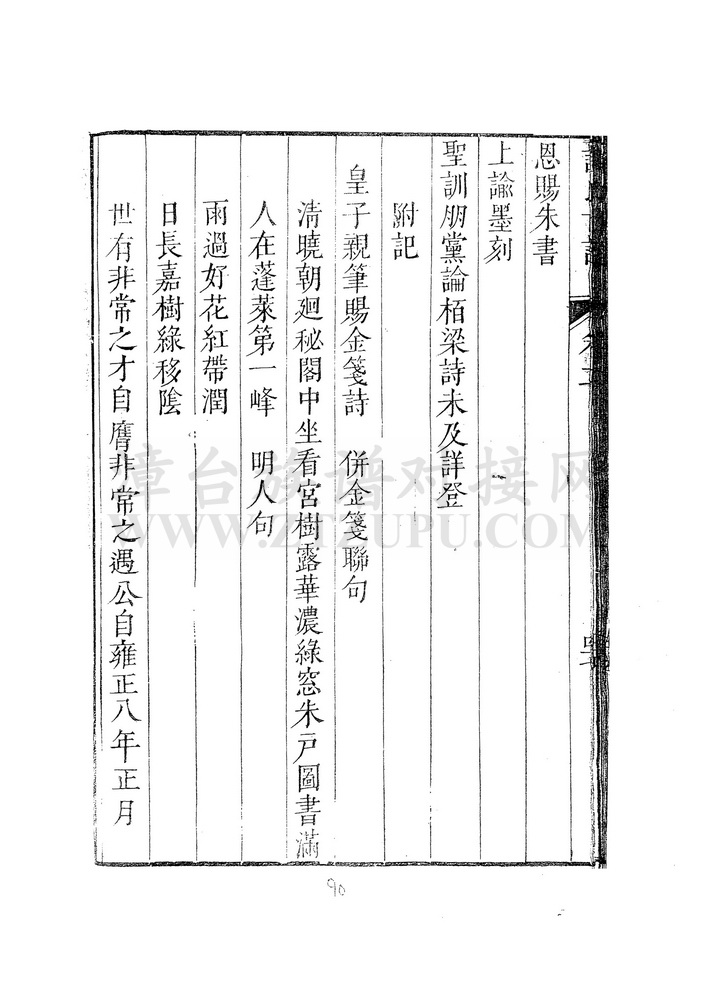 恩賜朱書
上諭墨刻
聖訓朋黨論栢梁詩未及詳登
附記
皇子親筆賜金箋詩　併金箋聯句
清曉朝廻秘閣中坐看宮樹露華濃綠窓朱戶圖書滿
人在蓬萊第一峰　明人句
雨過好花紅帶潤
日長嘉樹綠移陰
世有非常之才自膺非常之遇公自雍正八年正月
章台族谱对接网
WWW.ZTZUPU.COM
90